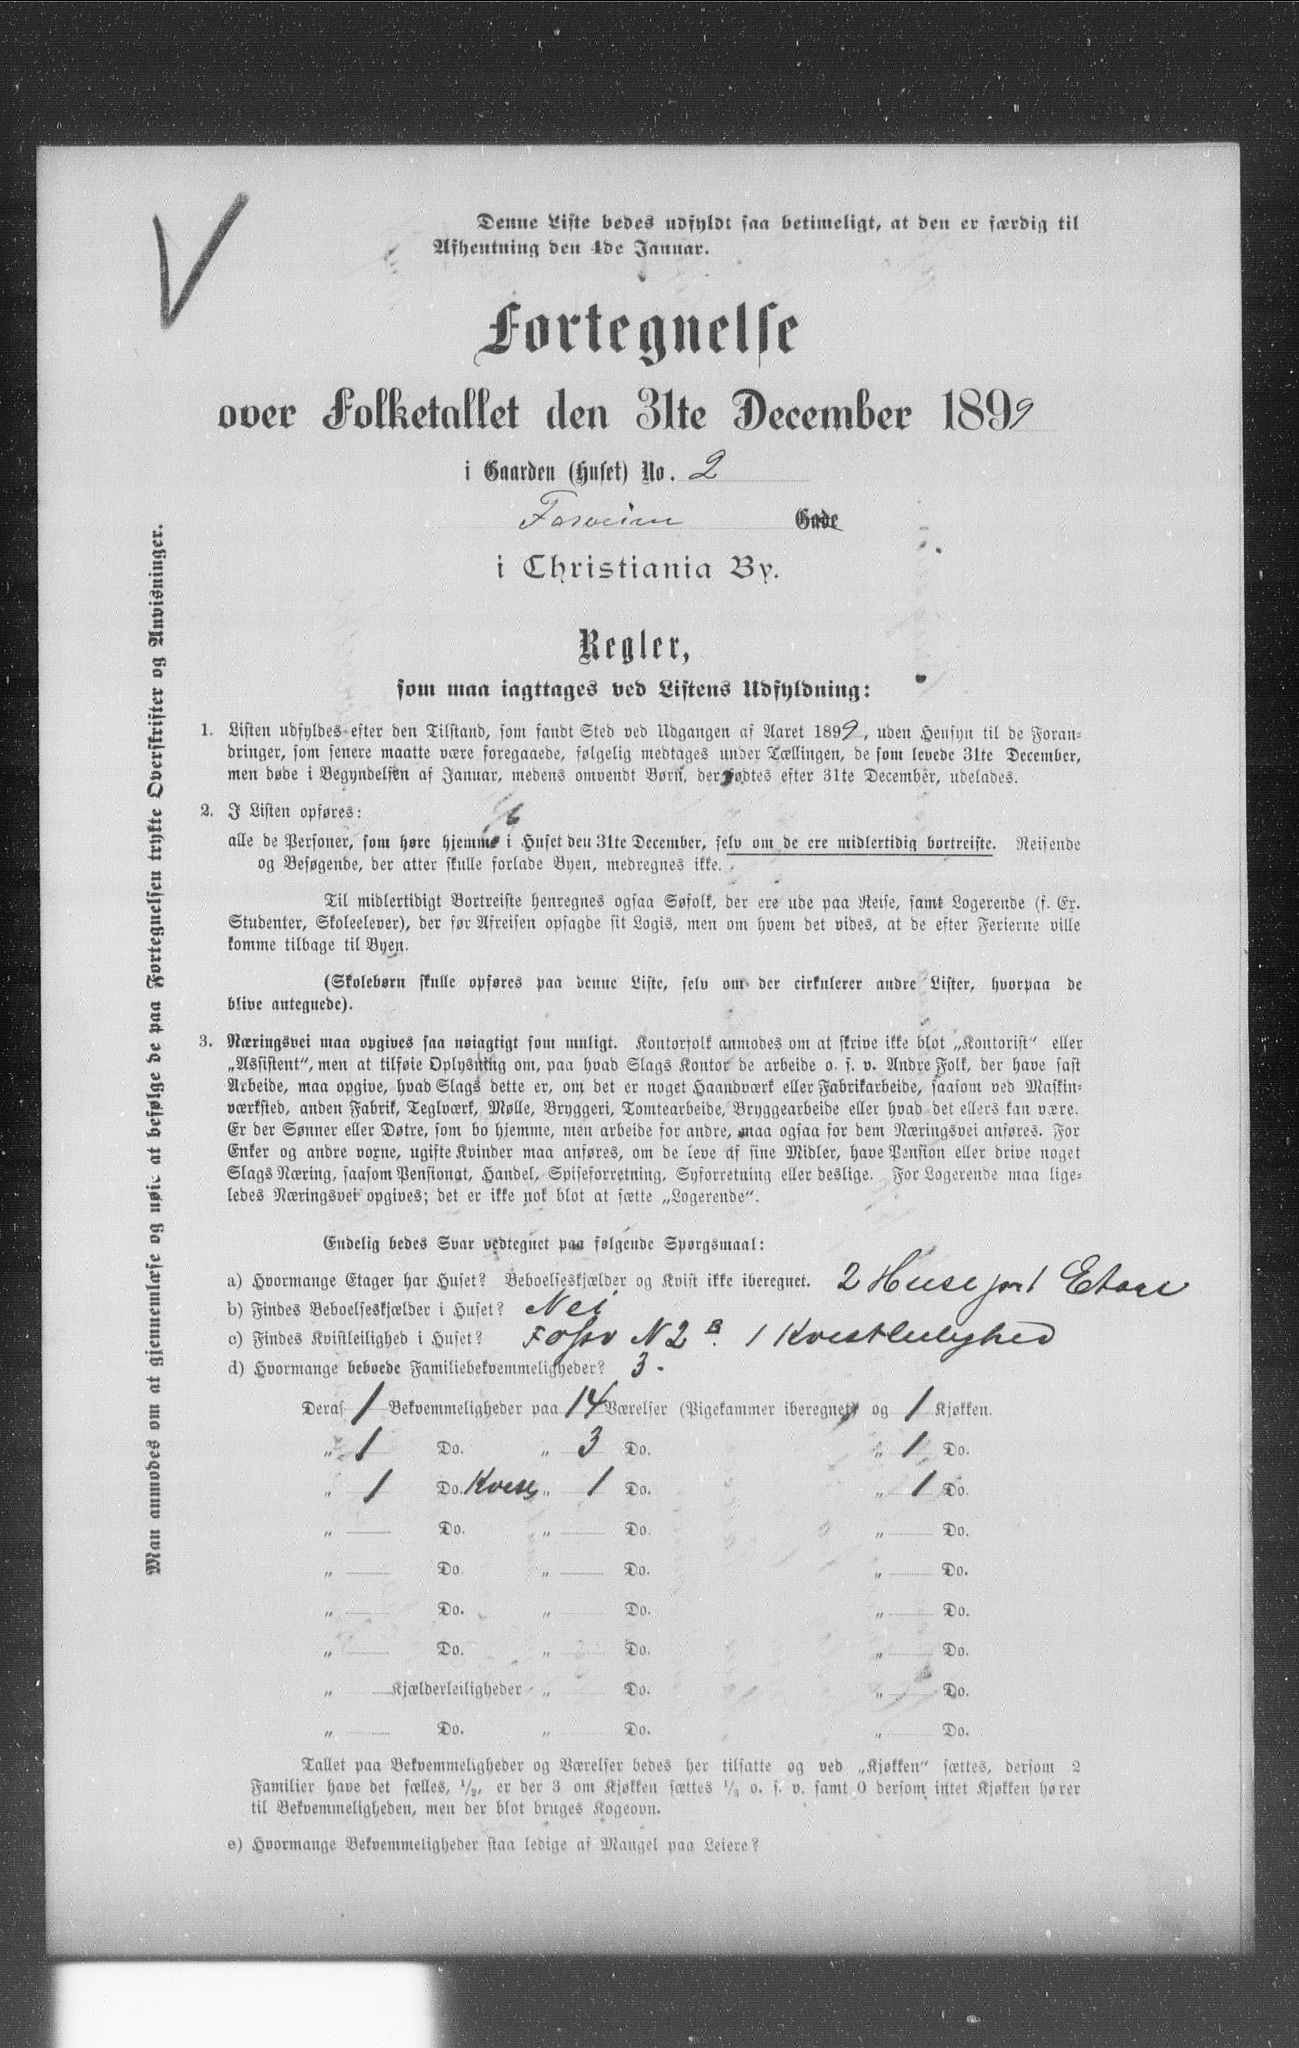 Denne Liste bedes udfyldt saa betimeligt, at den er færdig til
Afhentning den 4de Januar.
Fortegnelse
over Folketallet den 31te December 1899
i Gaarden (Huset) No. 2
Gade
i Christiania By.
Regler,
som maa iagttages ved Listens Udfyldning:
1. Listen udfyldes efter den Tilstand, som fandt Sted ved Udgangen af Aaret 1899, uden Hensyn til de Foran-
dringer, som senere maatte være foregaaede, følgelig medtages under Tællingen, de som levede 31te December,
men døde i Begyndelsen af Januar, medens omvendt Børn, der fødtes efter 31te December, udelades.
2. I Listen opføres:
alle de Personer, som høre hjemme i Huset den 31te December, selv om de ere midlertidig bortreiste. Reisende
og Besøgende, der atter skulle forlade Byen, medregnes ikke.
Til midlertidigt Bortreiste henregnes ogsaa Søfolk, der ere ude paa Reise, samt Logerende (f. Ex.
Studenter, Skoleelever), der før Afreisen opsagde sit Logis, men om hvem det vides, at de efter Ferierne ville
komme tilbage til Byen.
(Skolebørn skulle opføres paa denne Liste, selv om der cirkulerer andre Lister, hvorpaa de
blive antegnede).
3. Næringsvei maa opgives saa nøiagtigt som muligt. Kontorfolk anmodes om at skrive ikke blot „Kontorist“ eller
„Assistent“, men at tilføie Oplysning om, paa hvad Slags Kontor de arbeide o. s. v. Andre Folk, der have fast
Arbeide, maa opgive, hvad Slags dette er, om det er noget Haandværk eller Fabrikarbeide, saasom ved Maskin-
værksted, anden Fabrik, Teglværk, Mølle, Bryggeri, Tomtearbeide, Bryggearbeide eller hvad det ellers kan være.
Er der Sønner eller Døtre, som bo hjemme, men arbeide for andre, maa ogsaa for dem Næringsvei anføres. For
Enker og andre voxne, ugifte Kvinder maa anføres, om de leve af sine Midler, have Pension eller drive noget
Slags Næring, saasom Pensionat, Handel, Spiseforretning, Syforretning eller deslige. For Logerende maa lige-
ledes Næringsvei opgives; det er ikke nok blot at sætte „Logerende“.
Endelig bedes Svar vedtegnet paa følgende Spørgsmaal:
a) Hvormange Etager har Huset? Beboelseskjælder og Kvist ikke iberegnet. 2 Huse på 1 Etage
b) Findes Beboelseskjælder i Huset? Nei
c) Findes Kvistleilighed i Huset? Fossv N 2 B. 1 Kvistleilighed
d) Hvormange beboede Familiebekvemmeligheder? 3.
Deraf 1 Bekvemmeligheder paa 14 Værelser (Pigekammer iberegnet) og 1 Kjøkken.
„ 1 Do. „ 3 Do. „ 1 Do.
„ 1 Do. Kvist „ 1 Do. „ 1 Do.
„ Do. „ Do. „ Do.
„ Do. „ Do. „ Do.
„ Do. „ Do. „ Do.
„ Do. „ Do. „ Do.
„ Kjælderleiligheder „ Do. „ Do.
„ Do. „ Do. „ Do.
Tallet paa Bekvemmeligheder og Værelser bedes her tilsatte og ved „Kjøkken“ sættes, dersom 2
Familier have det fælles, 1/2, er der 3 om Kjøkken sættes 1/3 o. s. v. samt 0 dersom intet Kjøkken hører
til Bekvemmeligheden, men der blot bruges Kogeovn.
e) Hvormange Bekvemmeligheder staa ledige af Mangel paa Leiere?
Man anmodes om at gjennemlæse og nøie at befølge de paa Fortegnelsen trykte Overskrifter og Anvisninger.